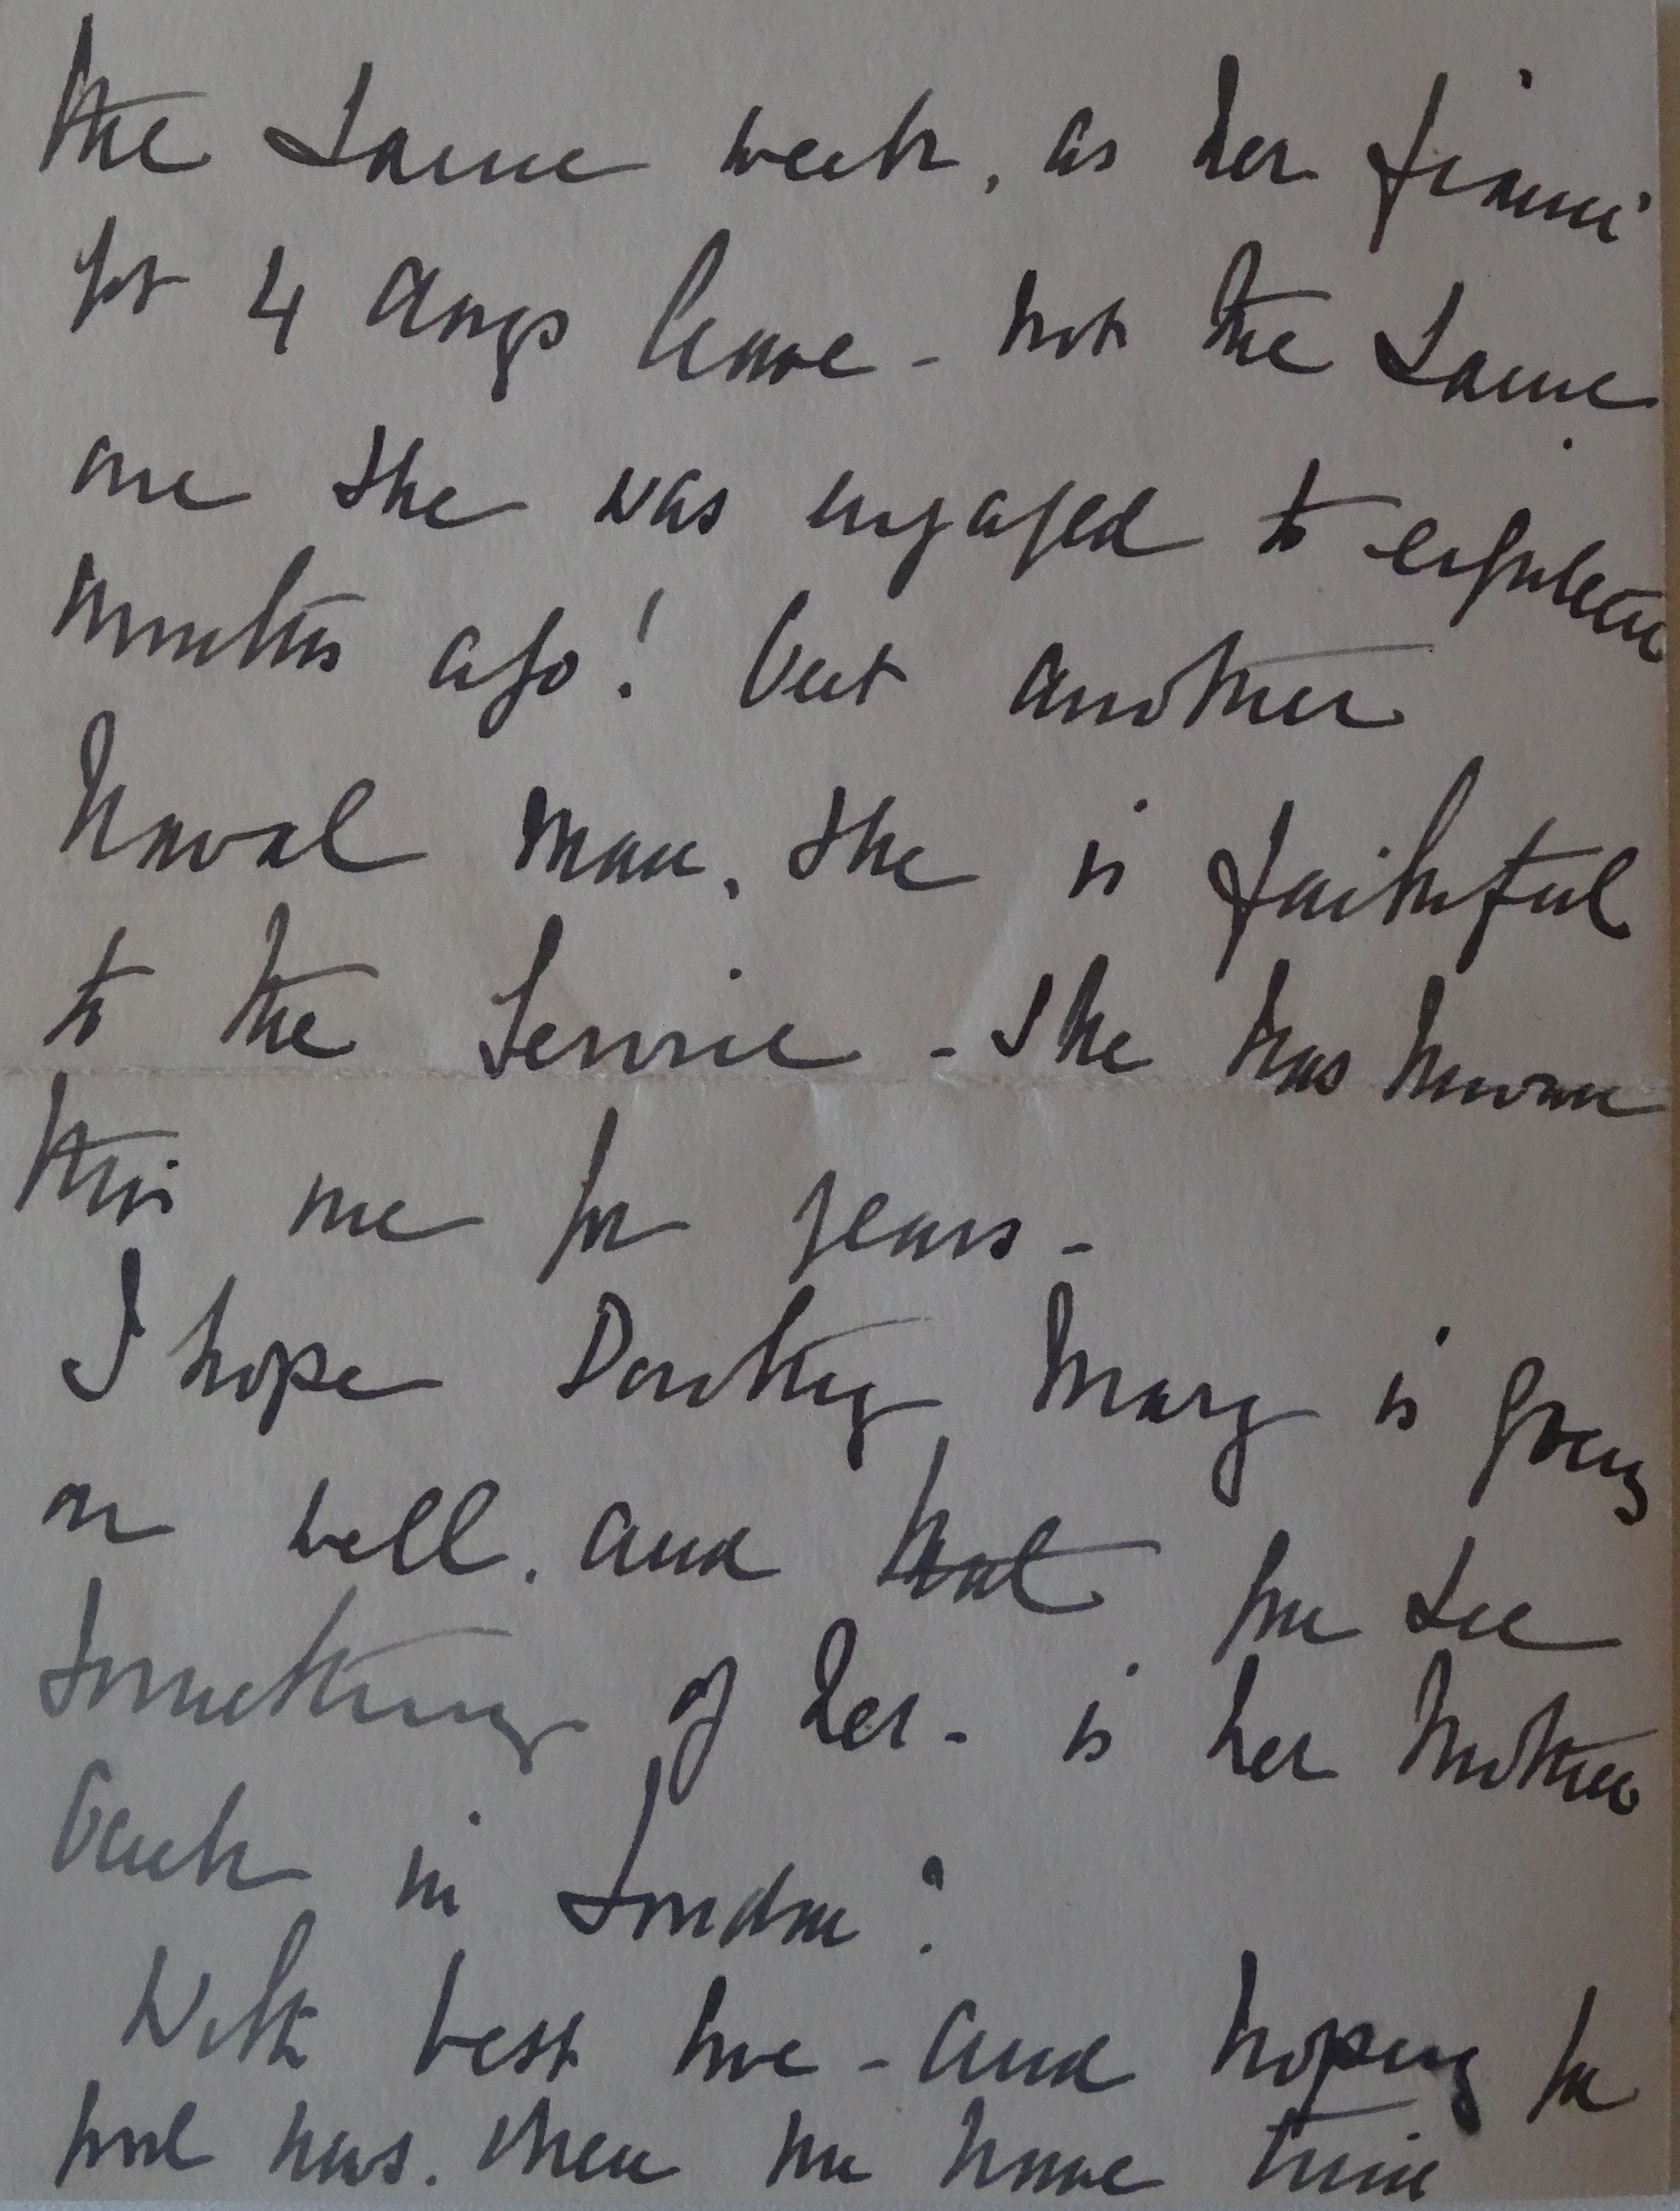 the same week, as her fiancé
got 4 days leave - not the same
one she was engaged to eighteen
months ago! but another
Naval man. She is faithful
to the Service - She has known
this one for years -
I hope Dorothy Mary is going
on well. and that you see
something of her - is her Mother
back in London?
With best love - and hoping for
good news. when you have time